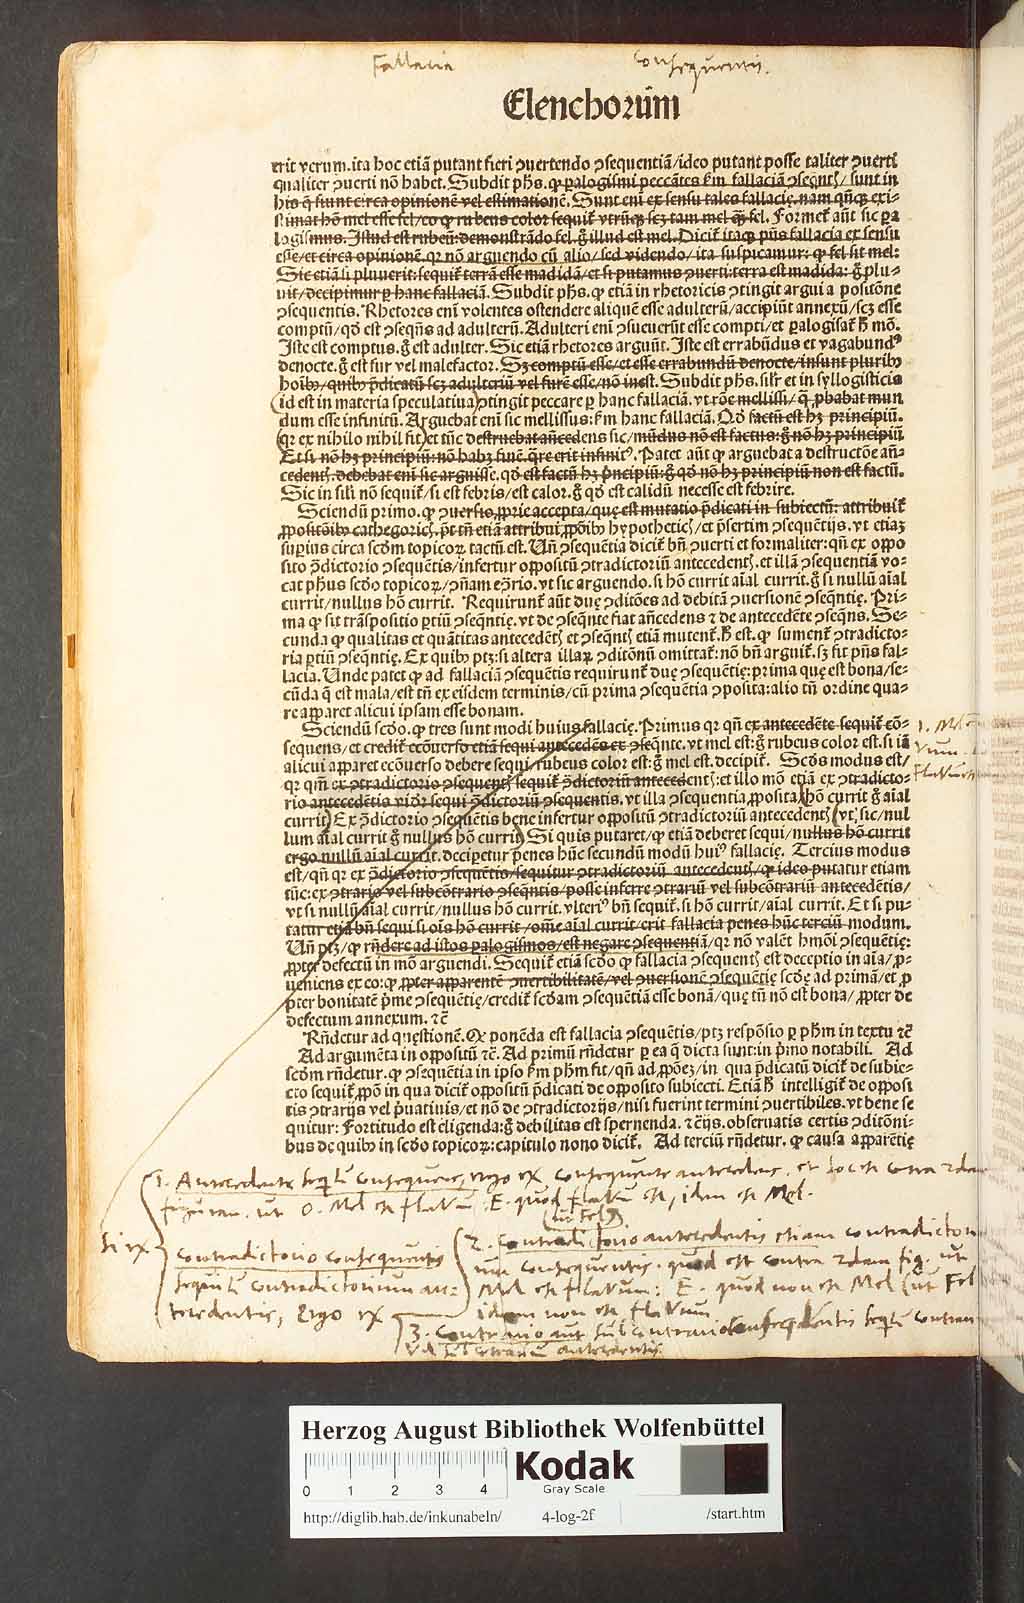 Fallacia Consequentis.
Elenchorum
erit verum. ita hoc etiã putant fieri ꝯuertendo ꝯsequentiã/ideo putant posse taliter ꝯuerti
qualiter ꝯuerti nõ habet. Subdit phs. ꝙ ꝑalogismi peccãtes ẜm fallaciã ꝯseqntꝭ/sunt in
his q̃ fiunt circa opinionẽ vel estimationẽ. Sunt eni ex sensu tales fallacię. nam qñqꝫ exi-
stimat hõ mel esse fel/eo ꝙ rubeus color sequit̃ vtrũqꝫ scꝫ tam mel qꝫ fel. Formet̃ aũt sic ꝑa
logismus. Istud est rubeũ: demonstrãdo fel. g̃ illud est mel. Dicit̃ itaqꝫ pñs fallacia ex sensu
esse/et circa opinionẽ. qꝛ nõ arguendo cũ alio/sed videndo/ita suspicamur: ꝙ fel sit mel:
Sic etiã si pluuerit: sequit̃ terrã esse madidã/et si putamus ꝯuerti: terra est madida: g̃ plu-
uit/decipimur ꝑ hanc fallaciã. Subdit phs. ꝙ etiã in rhetoricis ꝯtingit argui a positõne
ꝯsequentis. Rhetores eni volentes ostendere aliquẽ esse adulterũ/accipiũt annexũ/scꝫ esse
comptũ/qd est ꝯseqñs ad adulterũ. Adulteri eni ꝯsueuerũt esse compti/et ꝑalogisat̃ h̃ mõ.
Iste est comptus. g̃ est adulter. Sic etiã rhetores arguũt. Iste est errabũdus et vagabundꝰ
denocte. g̃ est fur vel malefactor. Sꝫ comptũ esse/et esse errabundũ denocte/insunt pluribꝰ
hoĩbꝰ/quibꝰ p̃dicatũ scꝫ adulteriũ vel furẽ esse/nõ inest. Subdit phs. silr et in syllogisticis
id est in materia speculatiua ꝯtingit peccare ꝑ hanc fallaciã. vt rõe mellissi/q̃ ꝓbabat mun
dum esse infinitũ. Arguebat eni sic mellissus: ẜm hanc fallaciã. Qd factũ est hꝫ principiũ.
qꝛ ex nihilo nihil fit et tũc destruebat añcedens sic/mũdus nõ est factus: g̃ nõ hꝫ principiũ
Et si nõ hꝫ principiũ: nõ habꝫ finẽ. q̃re erit infinitꝰ. Patet aũt ꝙ arguebat a destructõe añ-
cedentꝭ. debebat eni sic arguisse. qd est factũ hꝫ p̃ncipiũ: g̃ qd nõ hꝫ principiũ non est factũ.
Sic in sili nõ sequit̃/si est febris/est calor. g̃ qd est calidũ necesse est febrire.
Sciendũ primo. ꝙ ꝯuersio ꝓprie accepta/quę est mutatio p̃dicati in subiectũ: attribuit̃
ꝓpositõibꝰ cathegoricꝭ. p̃t tñ etiã attribui ꝓpõibꝰ hypotheticꝭ/et p̃sertim ꝯsequẽtijs. vt etiaꝫ
supius circa scdm topicoꝝ tactũ est. Uñ ꝯsequẽtia dicit̃ bñ ꝯuerti et formaliter: qñ ex oppo
sito ꝯ̃dictorio ꝯsequẽtis/infertur oppositũ ꝯtradictoriũ antecedentꝭ. et illã ꝯsequentiã vo-
cat phus scdo topicoꝝ/ꝯñam eꝯ̃rio. vt sic arguendo. si hõ currit aĩal currit. g̃ si nullũ aĩal
currit/nullus hõ currit. Requirunt̃ aũt duę ꝯditões ad debitã ꝯuersionẽ ꝯseqntię. Pri-
ma ꝙ sit trãspositio ꝑtiũ ꝯseqntię. vt de ꝯseqnte fiat añcedens ⁊ de antecedẽte ꝯseqns. Se-
cunda ꝙ qualitas et quãtitas antecedẽtꝭ et ꝯseqntꝭ etiã mutent̃. h̃ est. ꝙ sument̃ ꝯtradicto-
ria ꝑtiũ ꝯseqntię. Ex quibꝰ ptꝫ: si altera illaꝝ ꝯditõnũ omittat̃: nõ bñ arguit̃. sꝫ fit pñs fal-
lacia. Unde patet ꝙ ad fallaciã ꝯsequẽtis requirunt̃ duę ꝯsequẽtię: prima quę est bona/se-
cũda q̃ est mala/est tñ ex eisdem terminis/cũ prima ꝯsequẽtia ꝯposita: alio tñ ordine qua-
re apparet alicui ipsam esse bonam.
Sciendũ scdo. ꝙ tres sunt modi huius fallacię. Primus qꝛ qñ ex antecedẽte sequit̃ cõ-
sequens/et credit̃ ecõuerso etiã sequi antecedẽs ex ꝯseqnte. vt mel est: g̃ rubeus color est. si iã
alicui apparet ecõuerso debere sequi/rubeus color est: g̃ mel est. decipit̃. Scds modus est/
qꝛ qñ ex ꝯtradictorio ꝯsequentꝭ sequit̃ ꝯ̃dictoriũ antecedentꝭ: et illo mõ etiã ex ꝯtradicto-
rio antecedẽtis vidr̃ sequi ꝯ̃dictoriũ ꝯsequentis. vt illa ꝯsequentia ꝓposita hõ currit g̃ aĩal
currit. Ex ꝯ̃dictorio ꝯsequẽtis bene infertur oppositũ ꝯtradictoriũ antecedentꝭ (vt sic/nul
lum aĩal currit g̃ nullus hõ currit) Si quis putaret/ꝙ etiã deberet sequi/nullus hõ currit
ergo nullũ aĩal currit. decipetur p̃enes hũc secundũ modũ huiꝰ fallacię. Tercius modus
est/qñ qꝛ ex ꝯ̃dictorio ꝯsequẽtis/sequitur ꝯtradictoriũ antecedentꝭ/ꝙ ideo putatur etiam
tũc: ex ꝯtrario vel subcõtrario ꝯseqntis/posse inferre ꝯtrariũ vel subcõtrariũ antecedẽtis/
vt si nullũ aĩal currit/nullus hõ currit. vlteriꝰ bñ sequit̃. si hõ currit/aĩal currit. Et si pu-
tatur etiã bñ sequi si ois hõ currit/om̃e aĩal currit/erit fallacia penes hũc terciũ modum.
Uñ ptꝫ/ꝙ rñdere ad istos ꝑalogismos/est negare ꝯsequentiã/qꝛ nõ valẽt hmõi ꝯsequẽtię:
ꝓpter defectũ in mõ arguendi. Sequit̃ etiã scdo ꝙ fallacia ꝯsequentꝭ est deceptio in aĩa/ꝓ-
ueniens ex eo: ꝙ ꝓpter apparentẽ ꝯuertibilitatẽ/vel ꝯuersionẽ ꝯsequẽtię scdę ad primã/et ꝓ
pter bonitatẽ p̃me ꝯsequẽtię/credit̃ scdam ꝯsequẽtiã esse bonã/quę tñ nõ est bona/ꝓpter de
defectum annexum. ⁊c̃
Rñdetur ad questionẽ. Qꝛ ponẽda est fallacia ꝯsequẽtis/ptꝫ respõsio ꝑ phm in textu ⁊c̃
Ad argumẽta in oppositũ ⁊c̃. Ad primũ rñdetur ꝑ ea q̃ dicta sunt: in p̃mo notabili. Ad
scdm rñdetur. ꝙ ꝯsequẽtia in ipso ẜm phm fit/qñ ad ꝓpõeꝫ/in qua p̃dicatũ dicit̃ de subie-
cto sequit̃ ꝓpõ in qua dicit̃ oppositũ p̃dicati de opposito subiecti. Etiã h̃ intelligit̃ de opposi
tis ꝯtrarijs vel p̃uatiuis/et nõ de ꝯtradictorijs/nisi fuerint termini ꝯuertibiles. vt bene se
quitur: Fortitudo est eligenda: g̃ debilitas est spernenda. ⁊c̃ijs. obseruatis certis ꝯditõni-
bus de quibꝰ in scdo topicoꝝ: capitulo nono dicit̃. Ad terciũ rñdetur. ꝙ causa apparẽtię
1. Mel
Vinum
Flavum
1. Antecedente sequitur consequens, ergo ex consequente antecedens. et hoc est contra 2dam
figuram. ut O. Mel est flavum. E. quod flavum est, idem est Mel.
(ut Fel)
Si ex
contradictorio consequentis
sequitur contradictorium an:
tecedentis, Ergo ex
2. Contradictorio antecedentis etiam contradictori
um consequentis. quod est contra 2dam fig. ut
Mel est flavum: E. quod non est Mel (ut Fel
idem non est flavum
3. Contrario aut subcontrario consequentis sequitur contrari
vel subcontrarium antecedentis.
Herzog August Bibliothek Wolfenbüttel
0 1 2 3 4
Kodak
Gray Scale
http://diglib.hab.de/inkunabeln/ 4-log-2f /start.htm